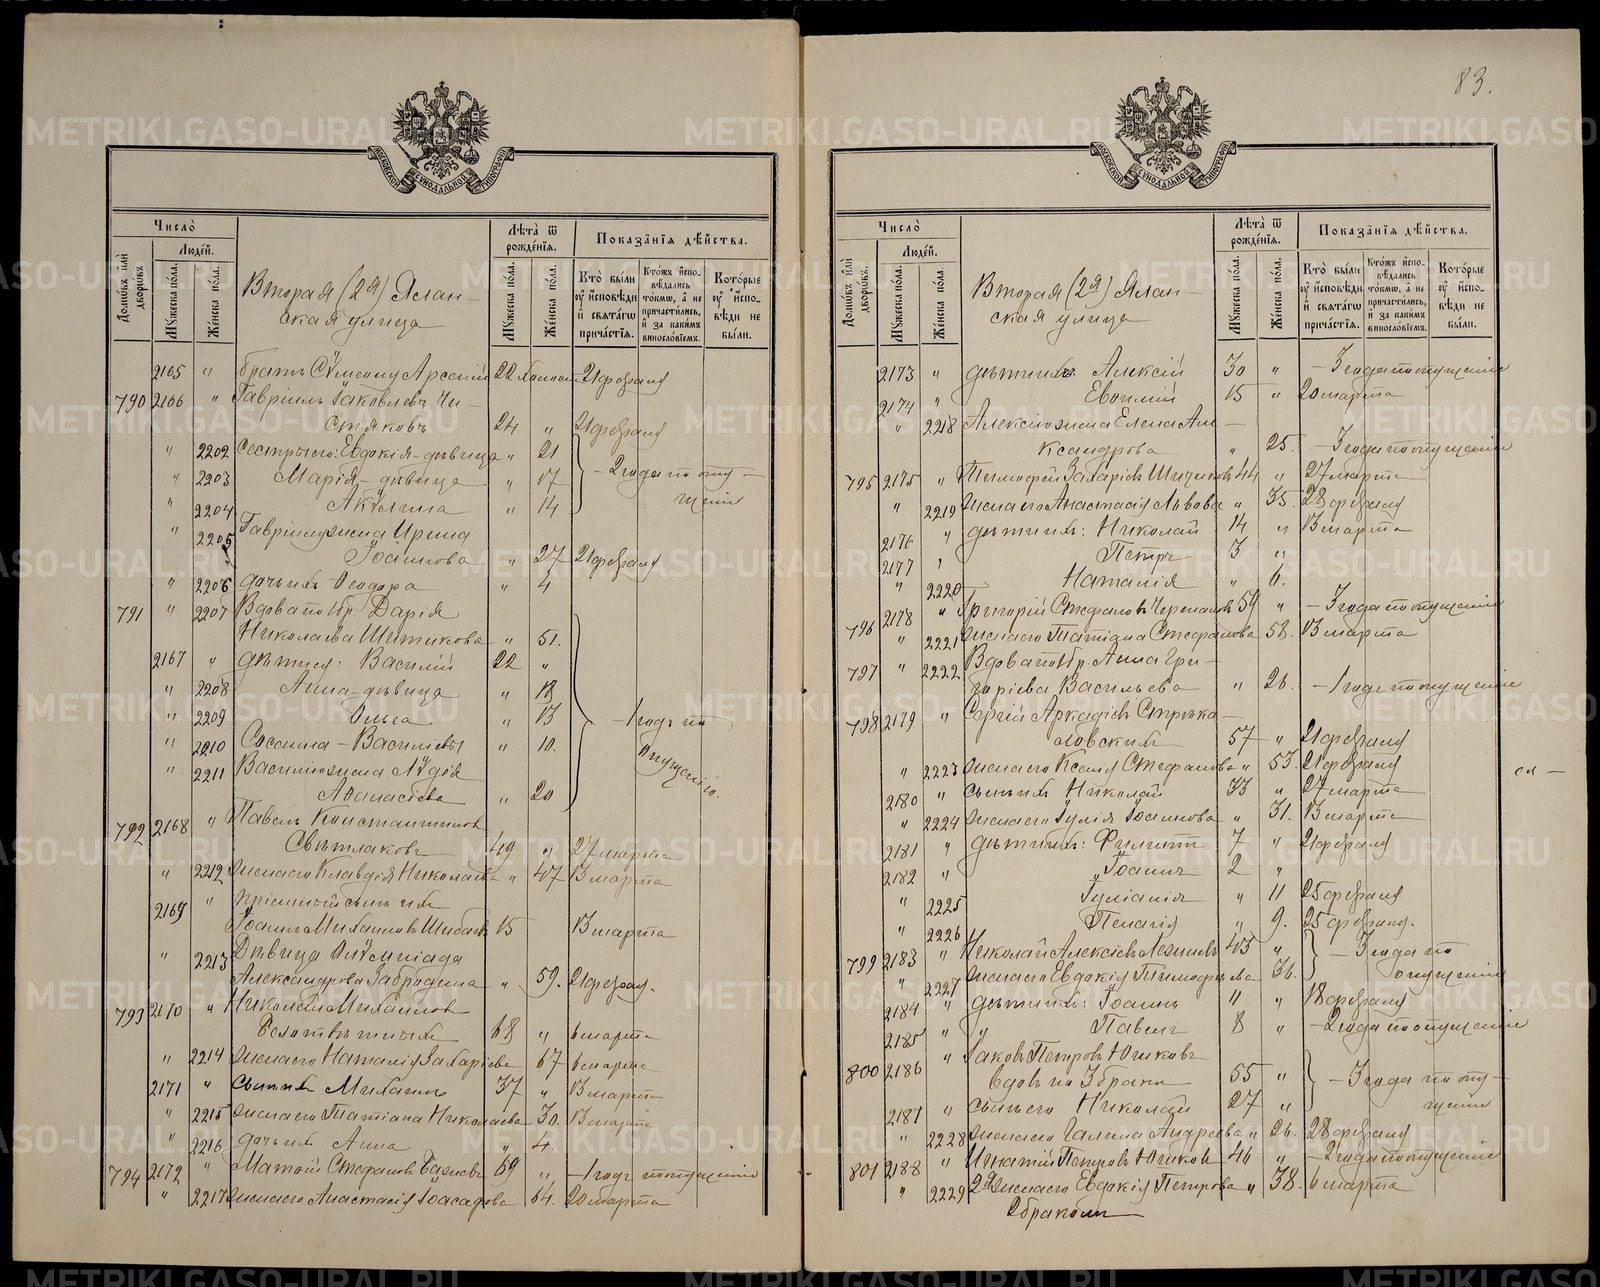 МОСКОВСКОЙ СѴНОДАЛЬНОЙ ТИПОГРАФІИ
Число̀
Люде́й.
Домѡ́въ и҆лѝ дворѡ́въ.
Мꙋ́жеска по́ла.
Же́нска по́ла.
Вторая (2я) Яслан-
ская улица
Лѣ́та ѿ рожде́нїѧ.
Мꙋ́жеска по́ла.
Же́нска по́ла.
Показа́нїѧ дѣ́йства.
Кто̀ бы́ли оу҆ и҆сповѣ́ди и҆ свѧта́гѡ прича́стїѧ.
Кто́жъ и҆спо-вѣ́дались то́кмѡ, а҆ не причасти́лись, и҆ за каки́мъ винословіемъ.
Кото́рые оу҆ и҆спо-вѣ́ди не бы́ли.
2165 " братъ Арсений 22 холост 21 февраля
790 2166 " Гавріилъ Іаковлевъ Чи-
стяковъ 24 " 21 февраля
" 2202 Сестры его: Евдокія-дѣвица " 21
" 2203 Марія-дѣвица " 17 - 2 года по опу-
" 2204 Акулина " 14 щенію
" 2205 Гавріила жена Ирина
Іоаннова " 27 21 февраля
" 2206 дочь ихъ Ѳеодора " 4
791 " 2207 Вдова по 1 бр. Дарія
Николаева Шитикова " 51.
2167 " дѣти ея: Василій 22 "
" 2208 Анна-дѣвица " 18
" 2209 Ольга " 13 - 1 годъ по
" 2210 Васильевы " 10. опущенію.
" 2211 Василія жена Лидія
Аѳанасіева " 20
792 2168 " Павелъ Константиновъ
Свѣтлаковъ 49 " 27 марта
" 2212 жена его Клавдія Николаева " 47 13 марта
2169 " пріемный сынъ ихъ
Іоаннъ Михаиловъ 15 13 марта
" 2213 Дѣвица Олимпіада
Александрова Забродина " 59. 21 февраля.
793 2170 " Николай Михаиловъ
68 " 6 марта
" 2214 жена его Наталія Захаріева " 67 6 марта
2171 " сынъ ихъ Михаилъ 37 " 13 марта
" 2215 жена его Татіана Николаева 30. 13 марта
" 2216 дочь ихъ Анна " 4.
794 2172 " Матѳій Стефановъ 69 " - 1 годъ по опущенію
" 2217 жена его Анастасія 64. 20 марта
83.
МОСКОВСКОЙ СѴНОДАЛЬНОЙ ТИПОГРАФІИ
Число̀
Люде́й.
Домѡ́въ и҆лѝ дворѡ́въ.
Мꙋ́жеска по́ла.
Же́нска по́ла.
Вторая (2я) Яслан-
ская улица
Лѣ́та ѿ рожде́нїѧ.
Мꙋ́жеска по́ла.
Же́нска по́ла.
Показа́нїѧ дѣ́йства.
Кто̀ бы́ли оу҆ и҆сповѣ́ди и҆ свѧта́гѡ прича́стїѧ.
Кто́жъ и҆спо-вѣ́дались то́кмѡ, а҆ не причасти́лись, и҆ за каки́мъ винословіемъ.
Кото́рые оу҆ и҆спо-вѣ́ди не бы́ли.
2173 " дѣти ихъ Алексій 30 " - 3 года по опущенію
2174 " Евѳимій 15 " 20 марта
" 2218 Алексія жена Елена Але-
ксандрова " 25. - 3 года по опущенію
795 2175 " Тимофей Захаріевъ 44 " 27 марта
" 2219 жена его Анастасія Львова " 35. 28 февраля
2176 " дѣти ихъ: Николай 14 " 13 марта
2177 " Петръ 3 "
" 2220 Наталія " 6.
796 2178 " Григорій Стефановъ Черепановъ 59 " - 3 года по опущенію
" 2221 жена его Татіана Стефанова 58. 13 марта
797 " 2222 Вдова по 1 бр. Анна Гри-
горіева Васильева " 26. - 1 годъ по опущенію
798 2179 " Сергій Аркадіевъ Стрѣжа-
ловскій 57 " 21 февраля
" 2223 жена его Ксенія Стефанова " 53. 21 февраля
2180 " сынъ ихъ Николай 33 " 27 марта
" 2224 жена его Іулія Іоаннова " 31. 13 марта
2181 " дѣти ихъ: Филиппъ 7 " 21 февраля
2182 " Іоаннъ 2 "
" 2225 Іуліанія " 11 25 февраля
" 2226 Пелагія " 9. 25 февраля.
799 2183 " Николай Алексіевъ 43 " - 3 года по
" 2227 жена его Евдокія Тимофеева 36. опущенію
2184 " дѣти ихъ: Іоаннъ 11 " 18 февраля
2185 " " Павелъ 8 " - 2 года по опущенію
800 2186 " Іаковъ Петровъ Юшковъ
вдовъ по 3 бракѣ 55 " - 3 года по опу-
2187 " сынъ его Николай 27 " щенію
" 2228 жена его Галина Андреева " 26. 28 февраля
801 2188 " Игнатій Петровъ Юшковъ 46 " - 2 года по опущенію
" 2229 жена его Евдокія Петрова " 38. 6 марта
2 бракомъ
METRIKI.GASO-URAL.RU